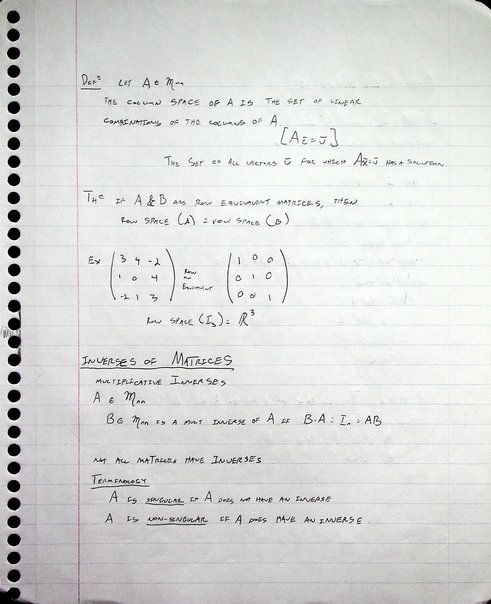 DEFⁿ LET A ∈ Mmn
THE COLUMN SPACE OF A IS THE SET OF LINEAR
COMBINATIONS OF THE COLUMNS OF A.
[A c̄ = ū]
THE SET OF ALL VECTORS ū FOR WHICH Ax̄=ū HAS A SOLUTION
THᶜ IF A & B ARE ROW EQUIVALENT MATRICES, THEN
ROW SPACE (A) = ROW SPACE (B)
EX (3 4 -2) (1 0 0)
(1 0 4) ROW ~ EQUIVALENT (0 1 0)
(-2 1 3) (0 0 1)
ROW SPACE (I₃) = ℝ³
INVERSES OF MATRICES
MULTIPLICATIVE INVERSES
A ∈ Mnn
B ∈ Mnn IS A MULT INVERSE OF A IF B·A = In = AB
NOT ALL MATRICES HAVE INVERSES
TERMINOLOGY
A IS SINGULAR IF A DOES NOT HAVE AN INVERSE
A IS NON-SINGULAR IF A DOES HAVE AN INVERSE